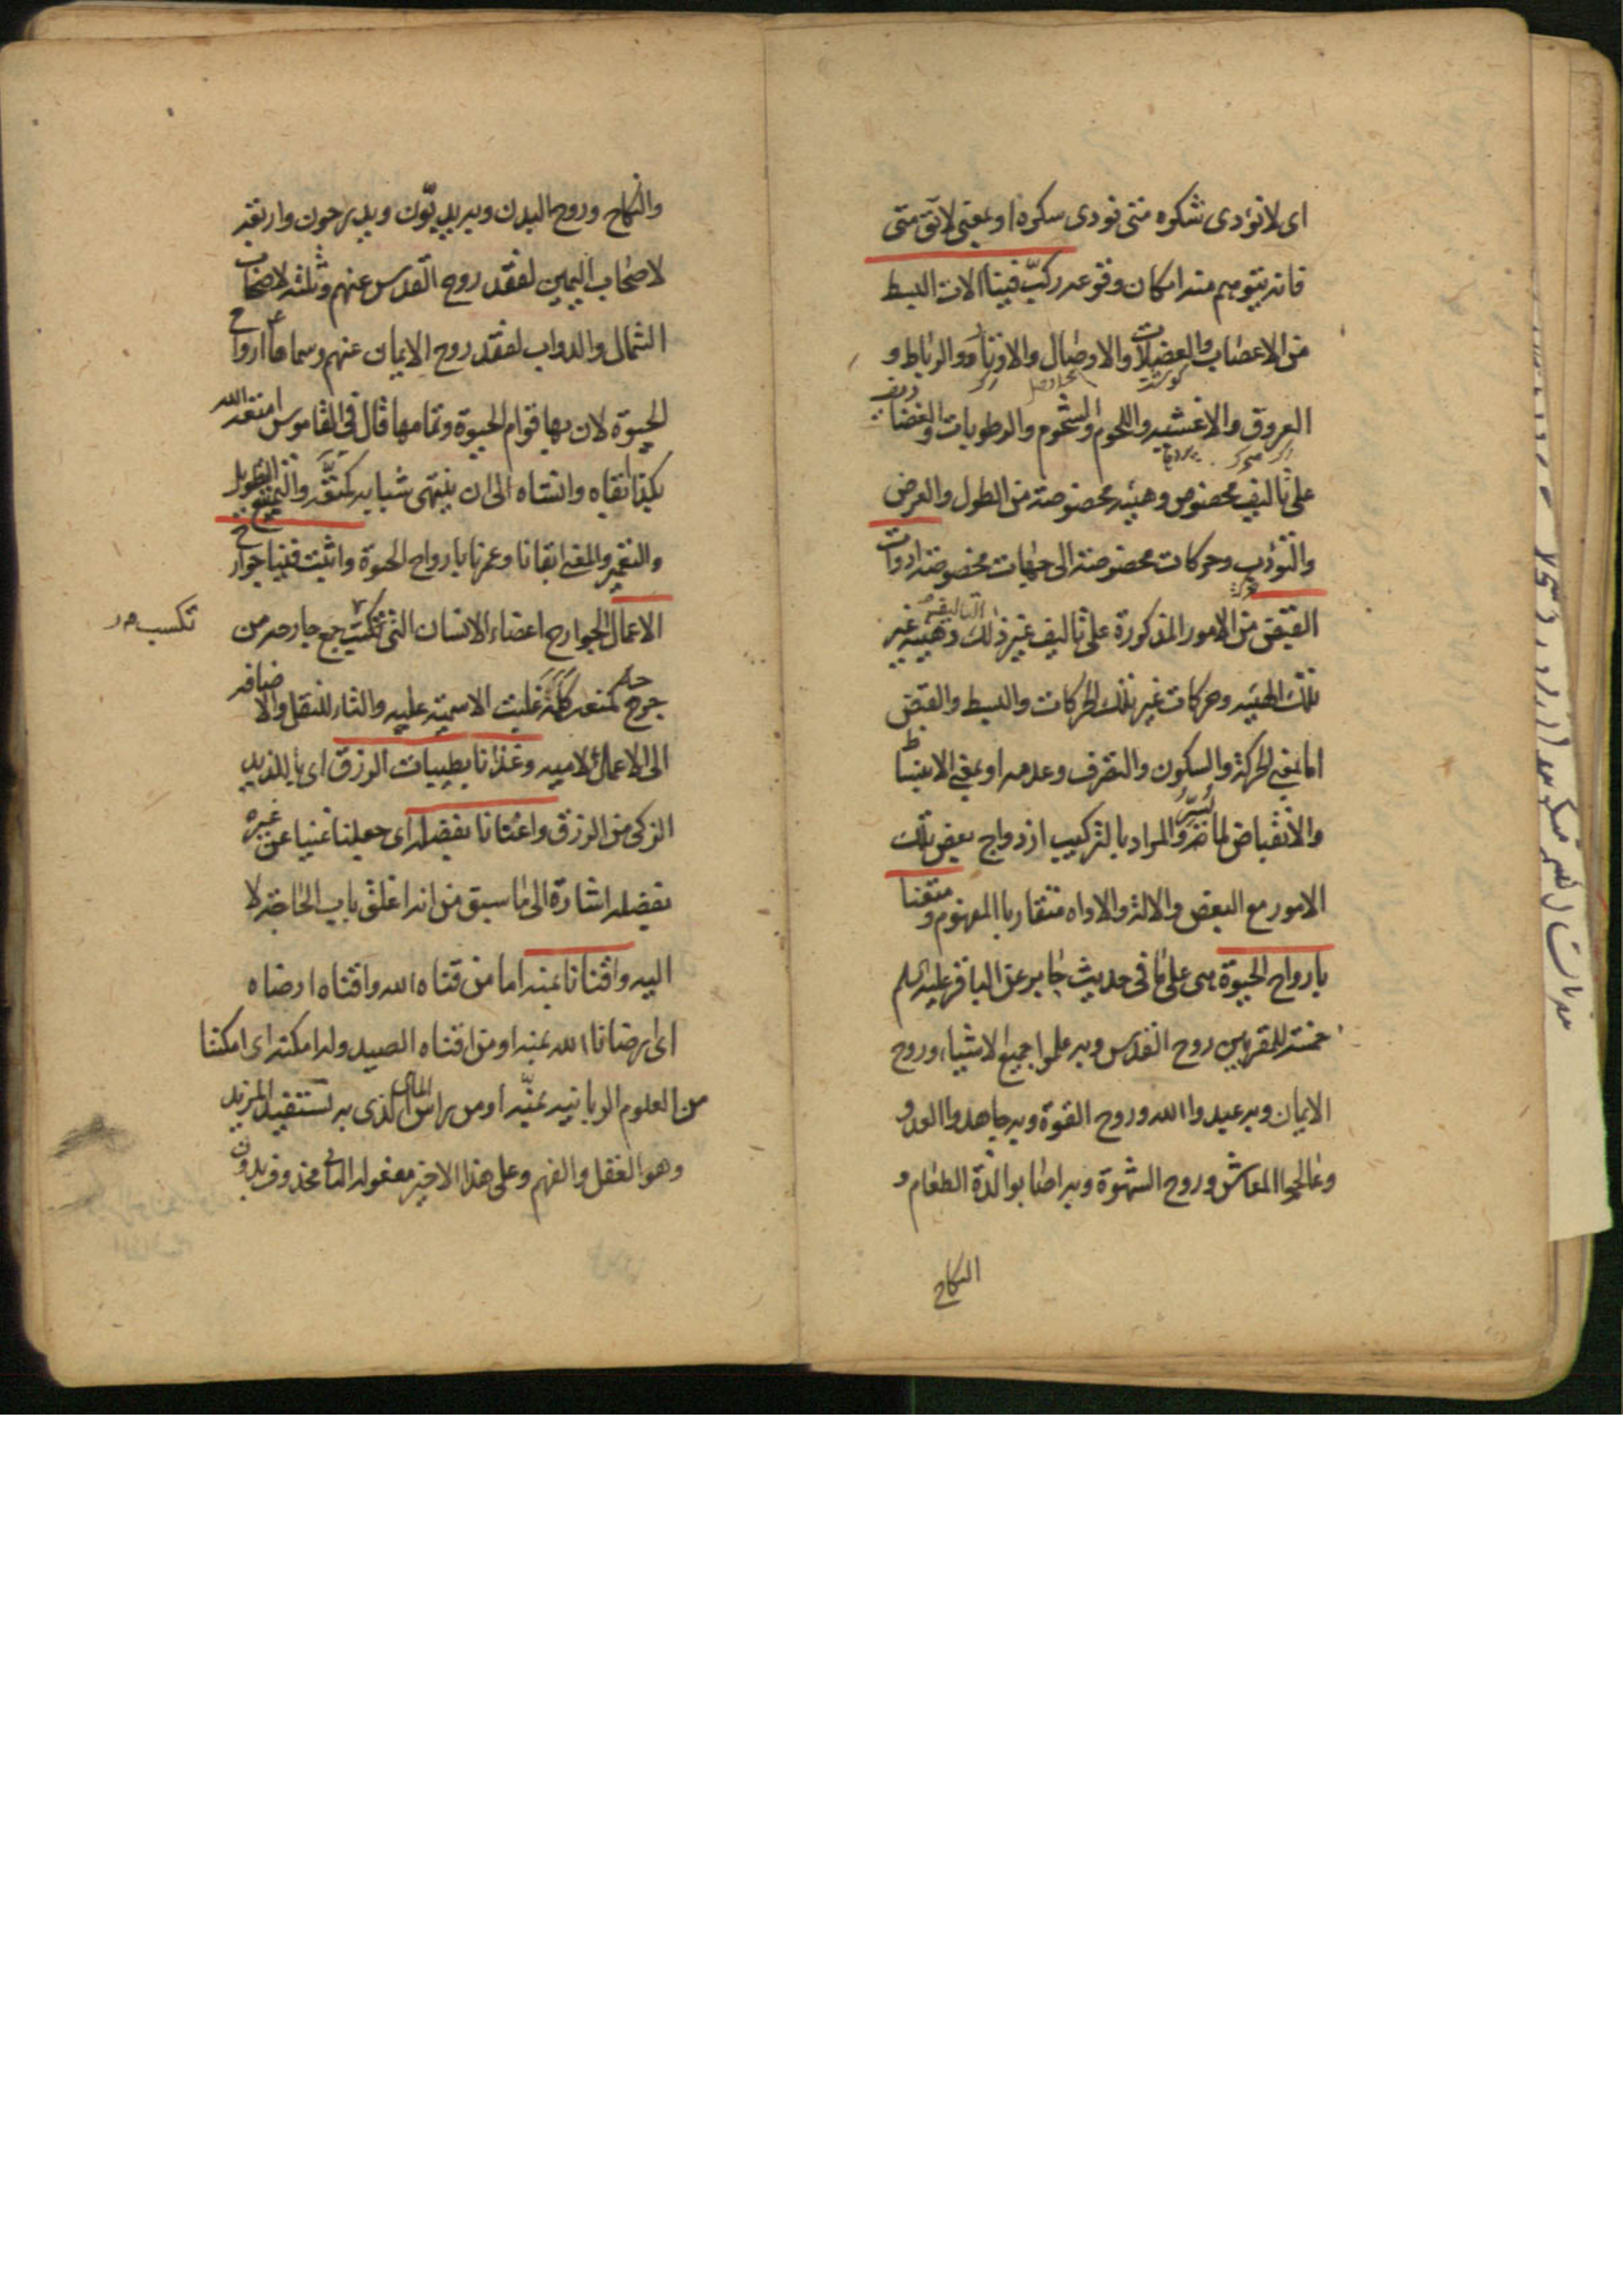 اى لا نؤدى شكره متى نودى سكره او بمعنى لا تق متى
فانه يتوهم منه امكان وقوعه ركّب فينا الات البسط
من الاعصاب والعضلات والاوصال والاوتار والرباط و
العروق والاغشيه واللحوم والشحوم والرطوبات والغضا
على تاليف مخصوص وهيئه مخصوصة من الطول والعرض
والتؤرب وحركات مخصوصة الى جهات مخصوصة ادوات
القبض من الامور المذكورة على تاليف غير ذلك التاليف وهيئه غير
تلك الهيئه وحركات غير تلك الحركات والبسط والقبض
اما بمعنى الحركة والسكون والتصرف وعدمه او بمعنى الانبساط
والانقباض لما والمراد بالتركيب ازدواج بعض تلك
الامور مع البعض والالة والاداه متقاربا المفهوم ومتعنا
بارواح الحيوة هى على ما فى حديث جابر عن الباقر عليه السلم
خمسة للمقربين روح القدس وبه علموا جميع الاشياء وروح
الايمان وبه عبدوا الله وروح القوة وبه جاهدوا العدو
وعالجوا المعاش وروح الشهوة وبه اصابوا لذة الطعام و
النكاح
والنكاح وروح البدن وبه يدبّون ويدرجون واربعة
لاصحاب اليمين لفقد روح القدس عنهم وثلثة لاصحاب
الشمال والدواب لفقد روح الايمان عنهم وسماها ارواح
الحيوة لان بها قوام الحيوة وتمامها قال فى القاموس امتعه الله
بكذا ابقاه وانشاه الى ان ينتهى شبابه كمتّعه والتمتيع التطويل
والتعمير والمعنى ابقانا وعمرنا بارواح الحيوة واثبت فينا جوارح
الاعمال الجوارح اعضاء الانسان التى تكتسب جمع جارحه من
تكسب
جرح كمنع غلبت الاسميته عليه والتاء للنقل والاضافه
الى الاعمال لاميه وغذانا بطيبات الرزق اى باللذيذ
الزكى من الرزق واغنانا بفضله اى جعلنا غنيا عن غيره
بفضله اشارة الى ما سبق من انه اغلق باب الحاجة لا
اليه واقنانا بمنه اما من قناه الله واقناه ارضاه
اى ارضانا الله بمنه او من اقناه الصيد وله امكنه اى امكننا
من العلوم الربانيه بمنّه او من راس المال الذى به نستفيد المزيد
وهو العقل والفهم وعلى هذا الاخير مفعوله الثانى محذوف بدون